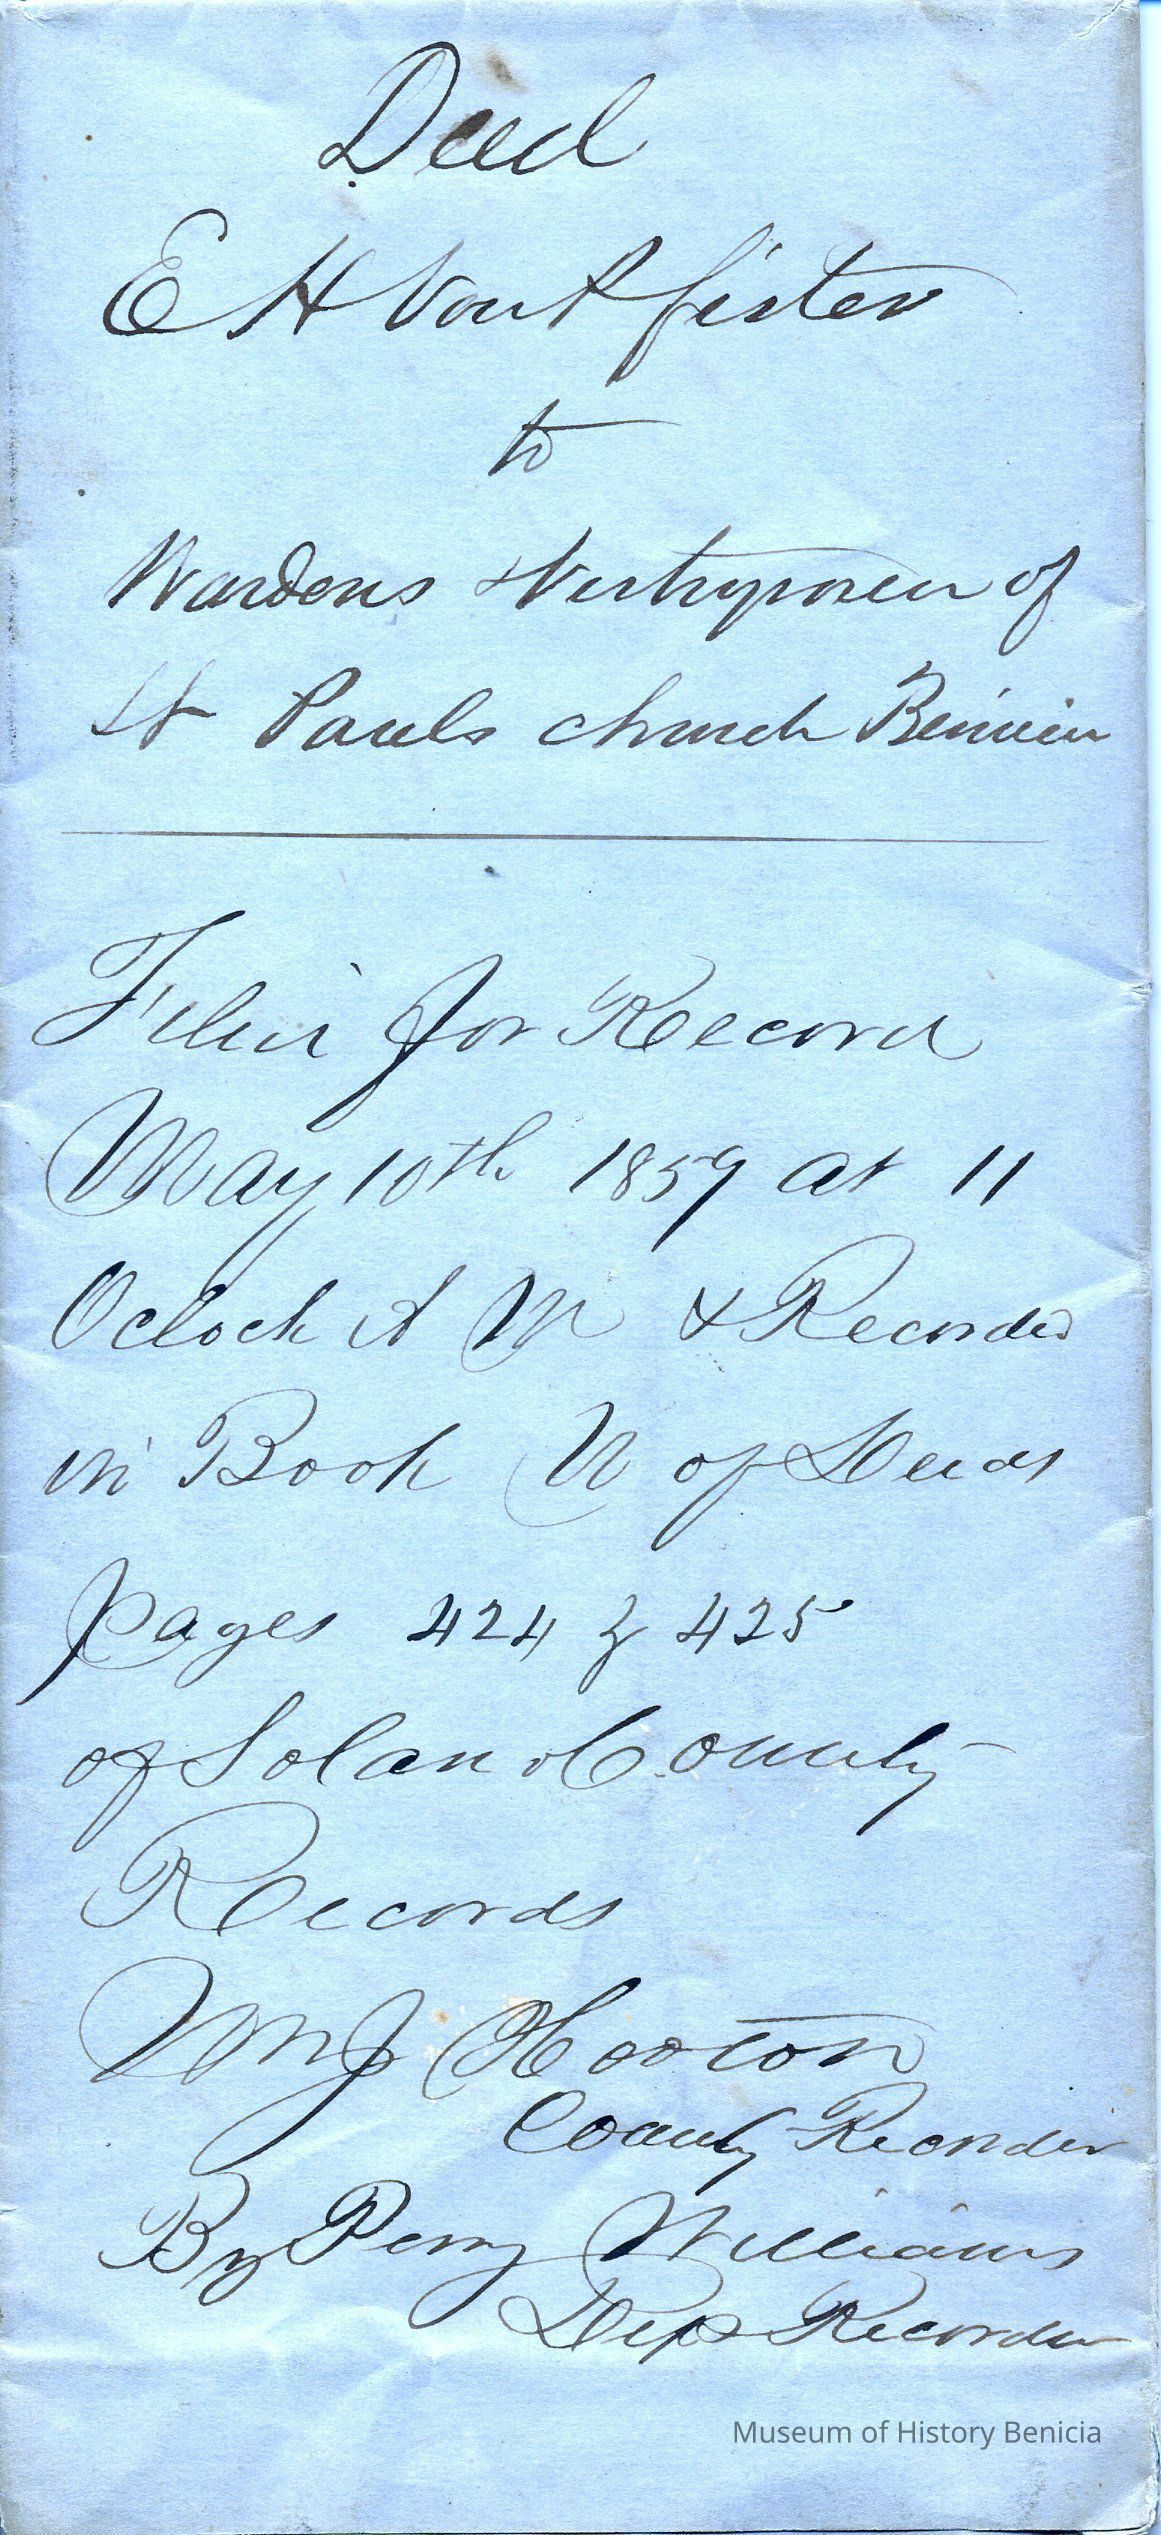 Deed
E H Von Pfister
to
Wardens & Vestrymen of
St Pauls church Benicia
Filed for Record
May 10th 1859 at 11
Oclock A M & Recorded
in Book N of Deeds
Pages 424 & 425
of Solano County
Records
Wm J Hooton
County Recorder
By Perry Williams
Dep Recorder
Museum of History Benicia